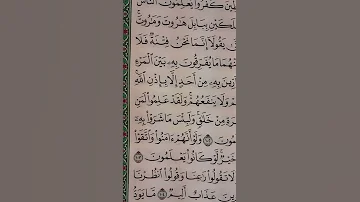 كَفَرُوا يُعَلِّمُونَ النَّاسَ
بِبَابِلَ هَٰرُوتَ وَمَٰرُوتَ
يَقُولَا إِنَّمَا نَحْنُ فِتْنَةٌ فَلَا
مَا يُفَرِّقُونَ بِهِۦ بَيْنَ الْمَرْءِ
مِنْ أَحَدٍ إِلَّا بِإِذْنِ اللَّهِ
وَلَا يَنفَعُهُمْ وَلَقَدْ عَلِمُوا لَمَنِ
مِنْ خَلَٰقٍ وَلَبِئْسَ مَا شَرَوْا بِهِۦ
وَلَوْ أَنَّهُمْ ءَامَنُوا وَاتَّقَوْا
خَيْرٌ لَّوْ كَانُوا يَعْلَمُونَ
لَا تَقُولُوا رَٰعِنَا وَقُولُوا انظُرْنَا
عَذَابٌ أَلِيمٌ مَّا يَوَدُّ